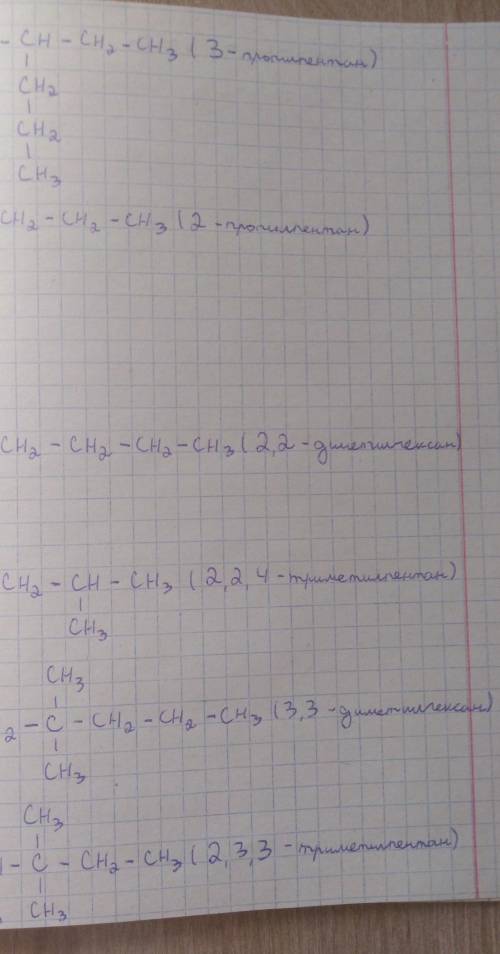 - CH - CH₂ - CH₃ (3-пропилпентан)
CH₂
CH₂
CH₃
CH₂ - CH₂ - CH₃ (2-пропилпентан)
CH₂ - CH₂ - CH₂ - CH₃ (2,2-диметилгексан)
CH₂ - CH - CH₃ (2,2,4-триметилпентан)
CH₃
CH₃
₂ - C - CH₂ - CH₂ - CH₃ (3,3-диметилгексан)
CH₃
CH₃
- C - CH₂ - CH₃ (2,3,3-триметилпентан)
CH₃